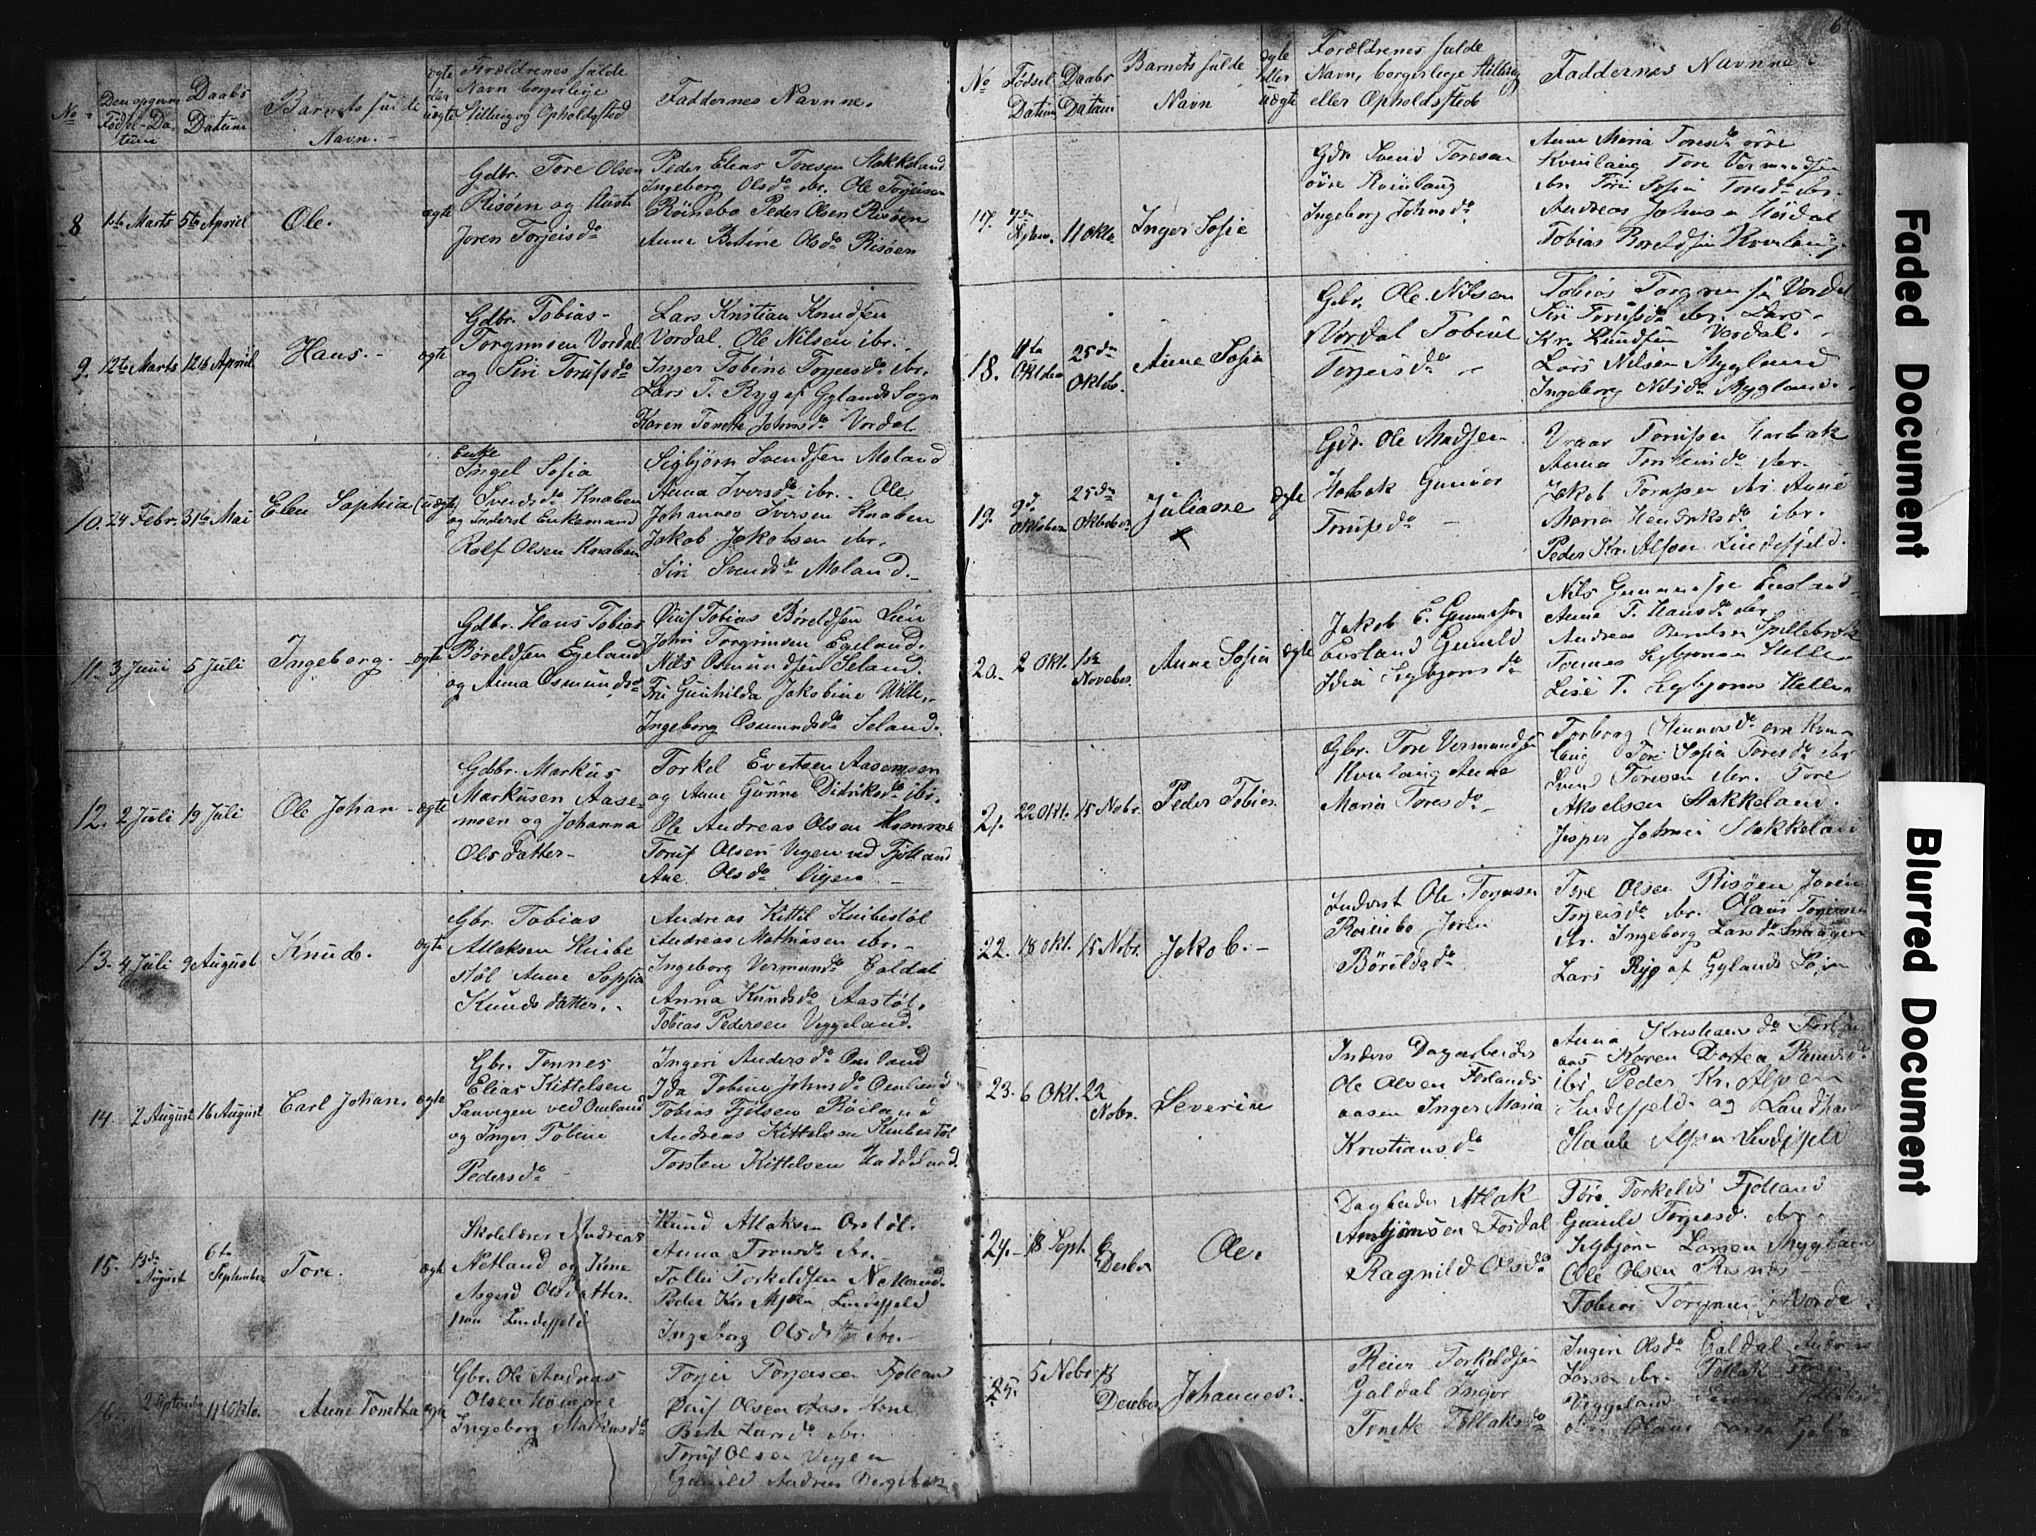 No
Den opgivne Fødsel-Datum
Daabs Datum
Barnets fulde Navn.
ægte eller uægte
Forældrenes fulde Navn borgerlige Stilling og Opholdsted
Faddernes Navnne.
8
1ste Marts
5te April
Ole.
ægte
Gdbr. Tore Olsen
Risøen og
Joren Torjeisdo
Peder Elias Toresen Stakkeland
Ingeborg Olsdo ibr. Ole Torjeisen
Röinebo Peder Olsen Risøen
Anne Betine Olsdo Risøen
9.
12te Marts
12te April
Hans.
ægte
Gdbr. Tobias
Torgrimsen Vordal
og Siri Torufsdo
Lars Kristian Knudsen
Vordal. Ole Nilsen ibr.
Inger Tobine Torjeisdo ibr.
Lars T. Ryg af Gylands Sogn
Karen Tonette Johnsdo Vordal
10.
24 Febr.
31te Mai
Elen Sophia
(uægte
Enke
Ingel Sofia
Svendsdo Knaben
og Inderst Enkemand
Rolf Olsen Knaben
Sigbjörn Svendsen Moland
Anna Iversdo ibr. Ole
Johannes Iversen Knaben
Jakob Jakobsen ibr.
Siri Svendsdo Moland.
11.
3 Juni
5 Juli
Ingeborg.
ægte
Gdbr. Hans Tobias
Böreldsen Egeland
og Anna Osmundsdo
Tobias Böreldsen
John Torgrimsen Egeland.
Nils Osmundsen Seland.
Gunhilda Jakobine
Ingeborg Osmundsdo Seland.
12.
2 Juli
19 Juli
Ole Johan
ægte
Gdbr. Markus
Markusen Aase-
moen og Johanna
Ols datter
Torkel Evertsen Aasemoen
og Anne Gunne Didriksdo ibr
Ole Andreas Olsen Homme
Toruf Olsen Vegen ved Fjotland
Ane Olsdo Vegen
13.
4 Juli
9 August
Knud.
ægte
Gbr. Tobias
Atlaksen Knibe
stöl Anne Sophia
Knuds datter.
Andreas Kittil Knibestöl
Andreas Mathiasen ibr.
Ingeborg Vermundsdo Galdal
Anna Knudsdo Aastöl.
Tobias Pedersen Veggeland.
14.
2 August
16 August
Carl Johan.
ægte
Gbr. Tönnes
Elias Kittelsen
Sanvegen ved Omland
og Inger Tobine
Pedersdo
Ingeri Andersdo Omland
Ida Tobine Johnsdo Omland
Tobias Röiland
Andreas Kittelsen Knibestöl
Torsten Kittelsen Haddeland.
15.
13de August
6te September
Tore.
ægte
Skolelærer Andreas
Netland og Kone
Asgerd Olsdatter
Lindefjeld
Knud Atlaksen
Anna Tronsdo ibr.
Tollei Torkeldsen Netland.
Peder Kr. Alfsen Lindefjeld
Ingeborg Olsdo ibr.
16.
2 September
11 Okto.
Anne Tonetta
ægte
Gbr. Ole Andreas
Olsen Homme
Ingeborg Markusdo
Torjer Torjersen Fjotland
Olsen Aas. Kone
Larsdo ibr.
Toruf Olsen Vegen
Gunild
6
No
Fødsel Datum
Daabs Datum
Barnets fulde Navn
ægte eller uægte
Forældrenes fulde
Navn, borgerlige Stilling
eller Opholdssted
Faddernes Navnne
17.
7de Sptbr.
11 Okto
Inger Sofie
Gdr Svend Toresen
øvre Kvinlaug
Ingeborg Johnsdo
Anne Maria Toresdo øvre
Kvinlaug Tore Vermundsen
ibr. Siri Sofia Toresdo ibr.
Andreas Johnsen
Tobias Böreldsen Kvinlaug
18.
11te Oktober
25de Oktob.
Anne Sofia
Gbr. Ole Nilsen
Vordal Tobine
Torjeisdo
Tobias Torgrimsen Vordal
Siri Torufsdo ibr. Lars
Kr. Knudsen Vordal.
Lars Nilsen Mygland
Ingeborg Nilsdo Mygland.
19.
9d. Oktober
25de Oktober
Juliane
x
ægte
Gdr. Ole Madsen
Gunvor
Torufsdo
Torufsen
Anna ibr.
Jakob Torufsen ibr Anne
Maria Hendriksdo ibr.
Peder Kr. Alfsen Lindefjeld.
20.
2 Okt.
1ste Novebr.
Anne Sofia
ægte
Jakob E. Gunnufsen
Eiesland Gunild
Idea Sigbjornsdo
Nils Gunnufsen Eiesland
Anne T. Hansdo ibr.
Andreas Berntsen Spillebrok
Tonnes Sigbjornsen Helle
Lise T. Sigbjorns Helle
21.
22 Okt.
15 Nobr.
Peder Tobias
Gbr. Tore Vermundsen
Kvinlaug Anne
Maria Toresdo
Torborg øvre Kvin-
laug Siri Sofia Toresdo ibr
Svend Toresen ibr. Tore
Akselsen Stakkeland.
Jesper Johnsen Stakkeland
22.
18 Okt.
15 Nobr.
Jakob.
Inderst Ole Torjeisen
Röinebo Joren
Böreldsdo
Tore Olsen Risöen Joren
Torjeisdo ibr. Olaus Torjeisen
ibr. Ingeborg Larsdo
Lars Ryg af Gylands Sogn
23.
6 Okt.
22 Nobr.
Severin
Inderst Dagarbeider
Ole Olsen Forlands
aasen Inger Maria
Kristiansdo
Anna Kristiansdo
aas Karen Dortea
ibr Peder Kr. Alfsen
Lindefjeld og
Alfsen Lindefjeld
24.
18 Sept.
6 Decebr
Ole.
Dagbeider Atlak
Ambjörnsen Fosdal
Ragnild Olsdo
Siri Torkelds Fjotland
Gunild Torjeisd. ibr.
Sigbjörn Larsen Mygland
Ole Olsen Risnes
Tobias Torgrimsen Vordal
25.
5 Nobr
Decebr
Johannes.
Reier Torkeldsen
Galdal Inger
Tonette Tollaksdo
Ingeri Olsdo Galdal Andreas
Larsen ibr. Tollak
Veggeland
Olaus
Faded Document
Blurred Document